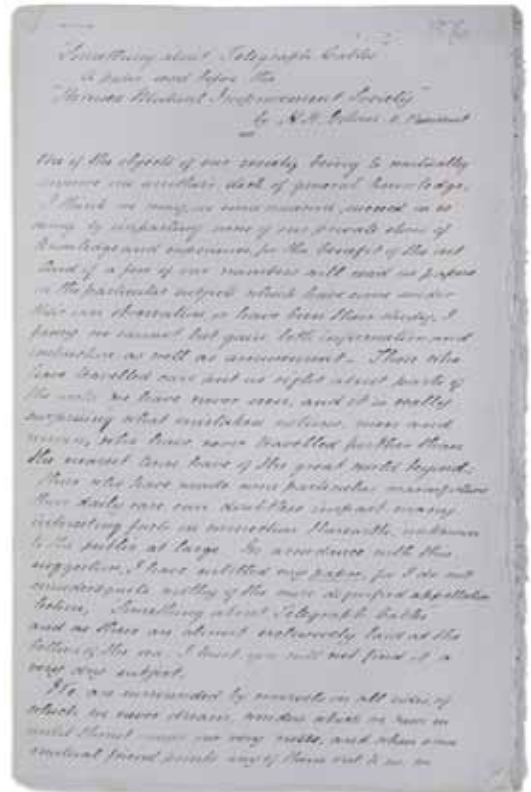 "Something about Telegraph Cables"
A paper read before the
"Thames Mutual Improvement Society"
by H. H.
One of the objects of our society being to mutually
improve one another's stock of general knowledge,
I think we may, in some measure, succeed in so
doing by imparting some of our private stores of
knowledge and experience for the benefit of the rest
And if a few of our members will read us papers
on the particular subject which have come under
their own observation or have been their study, I
fancy we cannot but gain both information and
instruction as well as amusement. Those who
have travelled can put us right about parts of
the world we have never seen, and it is really
surprising what mistaken notions, men and
women, who have never travelled further than
the nearest town have of the great world beyond.
Those who have made some particular
their daily care can doubtless impart many
interesting facts in connection therewith, unknown
to the public at large. In accordance with this
suggestion, I have entitled my paper, for I do not
consider quite worthy of the more dignified appellation
lecture, Something about Telegraph Cables
and as these are almost exclusively laid at the
bottom of the sea I trust you will not find it a
very dry subject.
We are surrounded by marvels on all sides, of
which we never dream, wonders which we
until under our very noses, and when some
mutual friend points any of them out to us, we